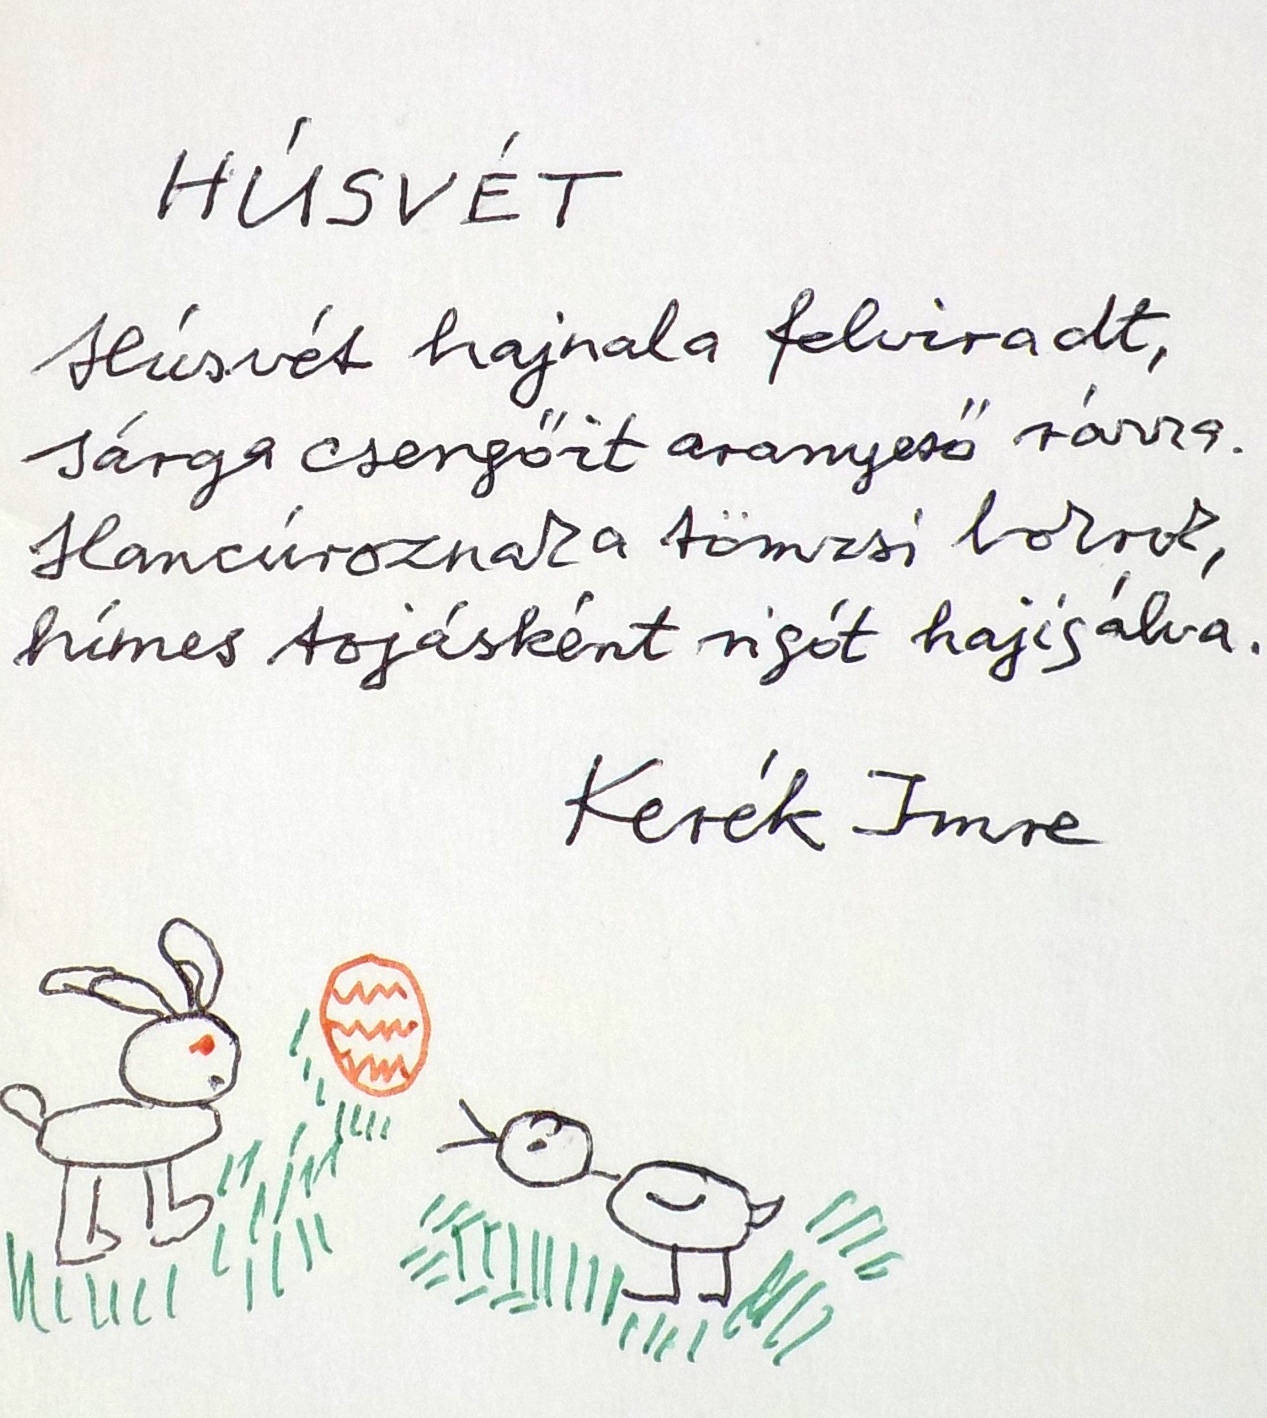 HÚSVÉT
Húsvét hajnala felviradt,
sárga csengőit aranyeső rázza.
Hancúroznak a tömzsi bokrok,
hímes tojásként rigót hajigálva.
Kerék Imre